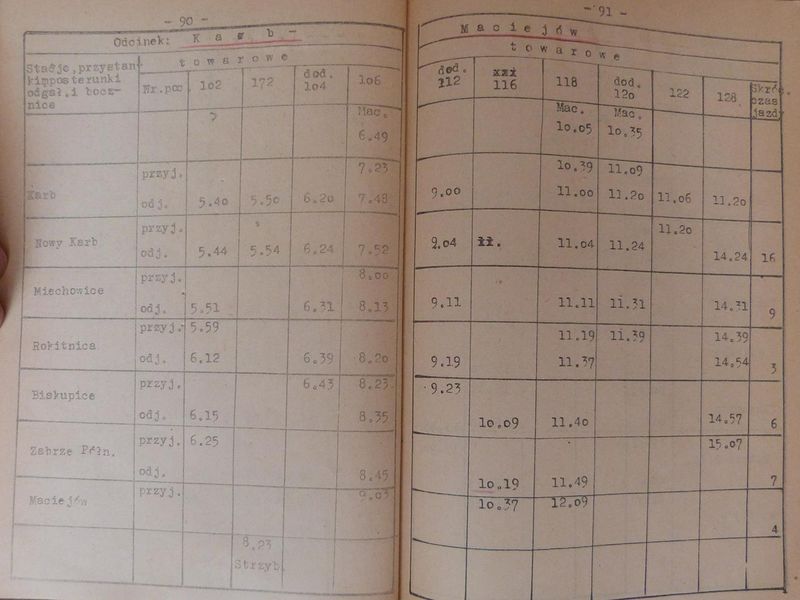 - 90 -
Odcinek: K a r b -
t o w a r o w e
Stacje,przystan
ki,posterunki
odgał.i bocz-
nice
Nr.poc 102 172 dod. 104 106
Mac.
6.49
przyj. 7.23
Karb
odj. 5.40 5.50 6.20 7.48
przyj.
Nowy Karb
odj. 5.44 5.54 6.24 7.52
przyj. 8.00
Miechowice
odj. 5.51 6.31 8.13
przyj. 5.59
Rokitnica
odj. 6.12 6.39 8.20
przyj. 6.43 8.23
Biskupice
odj. 6.15 8.35
przyj. 6.25
Zabrze Płn.
odj. 8.45
Maciejów przyj. 9.03
8.23
Strzyb.
- 91 -
M a c i e j ó w
t o w a r o w e
dod. 112 xxx 116 118 dod. 120 122 128 Skró czas jazdy
Mac. Mac.
10.05 10.35
10.39 11.09
9.00 11.00 11.20 11.06 11.20
11.20
9.04 11.04 11.24 14.24 16
9.11 11.11 11.31 14.31 9
11.19 11.39 14.39
9.19 11.37 14.54 3
9.23
10.09 11.40 14.57 6
15.07
10.19 11.49 7
10.37 12.09
4